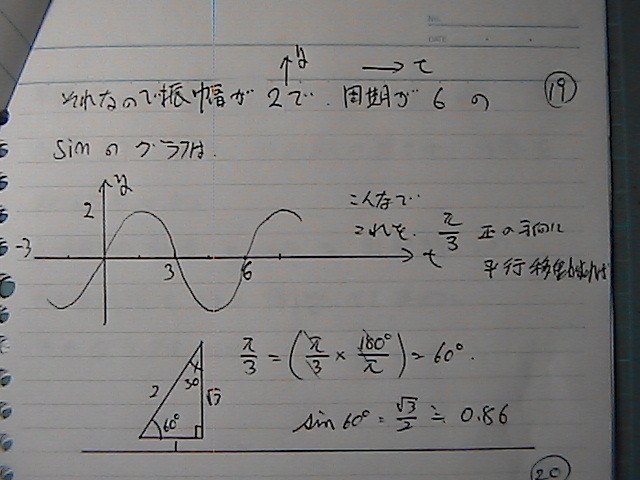 NO.
DATE
y → t
それなので振幅が 2で. 周期が 6 の
⑲
sinのグラフは.
y
2
-3 3 6 t
こんなで
これを. π/3 正の方向に
平行移動すれば
2 30 √3 60° 1
π/3 = (π/3 × 180°/π) = 60°.
sin 60° = √3/2 ≒ 0.86
⑳